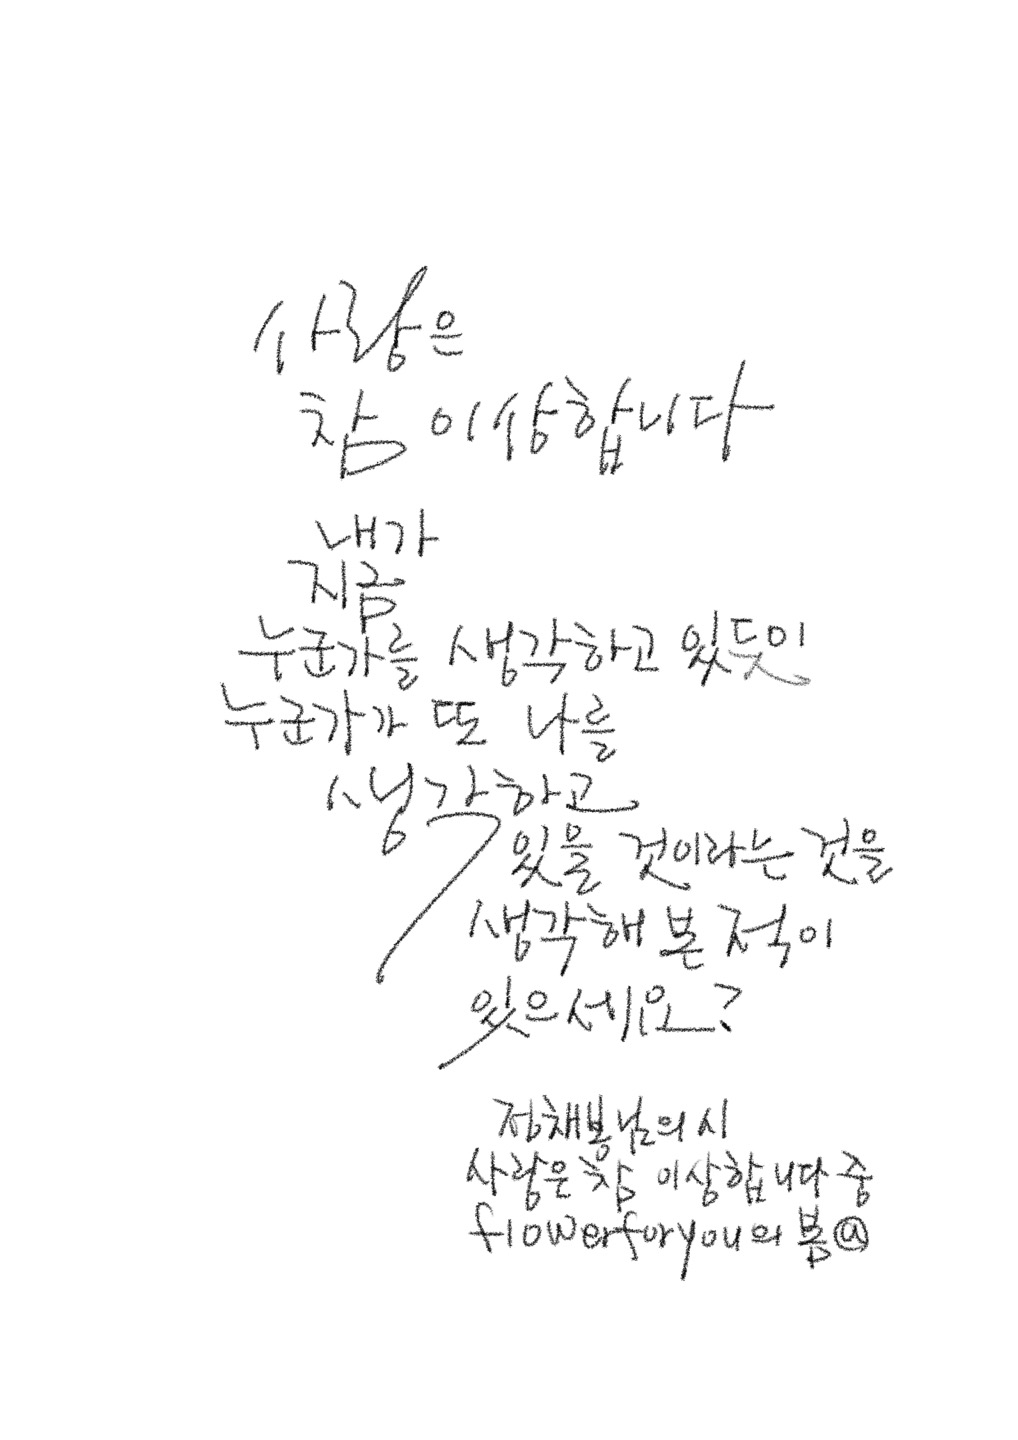 사랑은
참 이상합니다
내가
지금
누군가를 생각하고 있듯이
누군가가 또 나를
생각하고
있을 것이라는 것을
생각해 본 적이
있으세요?
정채봉님의 시
사랑은 참 이상합니다 중
flowerforyou의 봄@